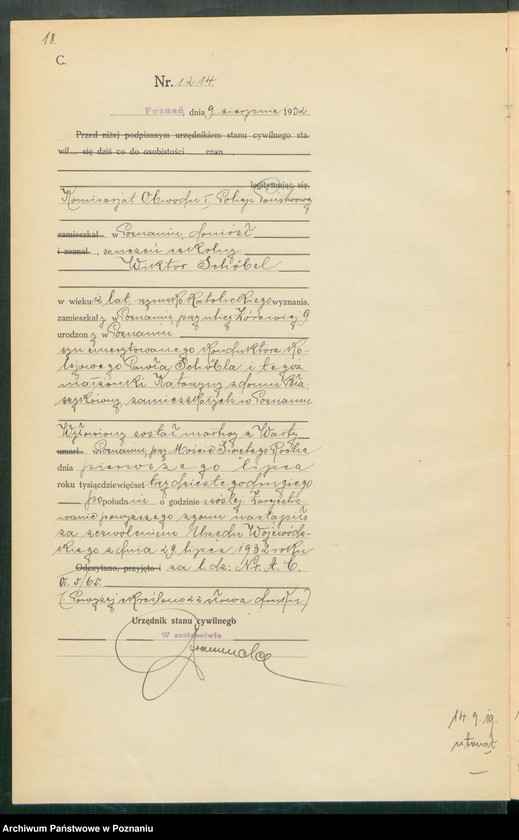 18.
C.
Nr. 1214.
Poznań, dnia 9. sierpnia 1932
Przed niżej podpisanym urzędnikiem stanu cywilnego sta-
wił się dziś co do osobistości znan
legitymując się
Komisarjat Obwodu I Policji Państwowej
zamieszkał w Poznaniu, doniósł
i zeznał, że uczeń szkolny
Wiktor Schöbel
w wieku lat, rzymsko katolickiego wyznania,
zamieszkał y w Poznaniu, przy ulicy Żórawiej 9
urodzon y w Poznaniu
syn emerytowanego konduktora ko-
lejowego Pawła Schöbla i tegoż
małżonki Katarzyny z domu Bła-
szyków, zamieszkałych w Poznaniu
Wyłowiony został martwy z Warty
umarł w Poznaniu, przy Moście Świętego Rocha
dnia pierwszego lipca
roku tysiącdziewięćset trzydziestego drugiego
po południu o godzinie szóstej. Zarejestro-
wanie powyższego zgonu nastąpiło
za zezwoleniem Urzędu Wojewódz-
kiego z dnia 29 lipca 1932 roku
Odczytano, przyjęto i za l. dz. Nr. A. C.
5/65.
(Powyżej skreślono 22 słowa druku)
Urzędnik stanu cywilnego
W zastępstwie
14. 9. ig.
utonął
Archiwum Państwowe w Poznaniu